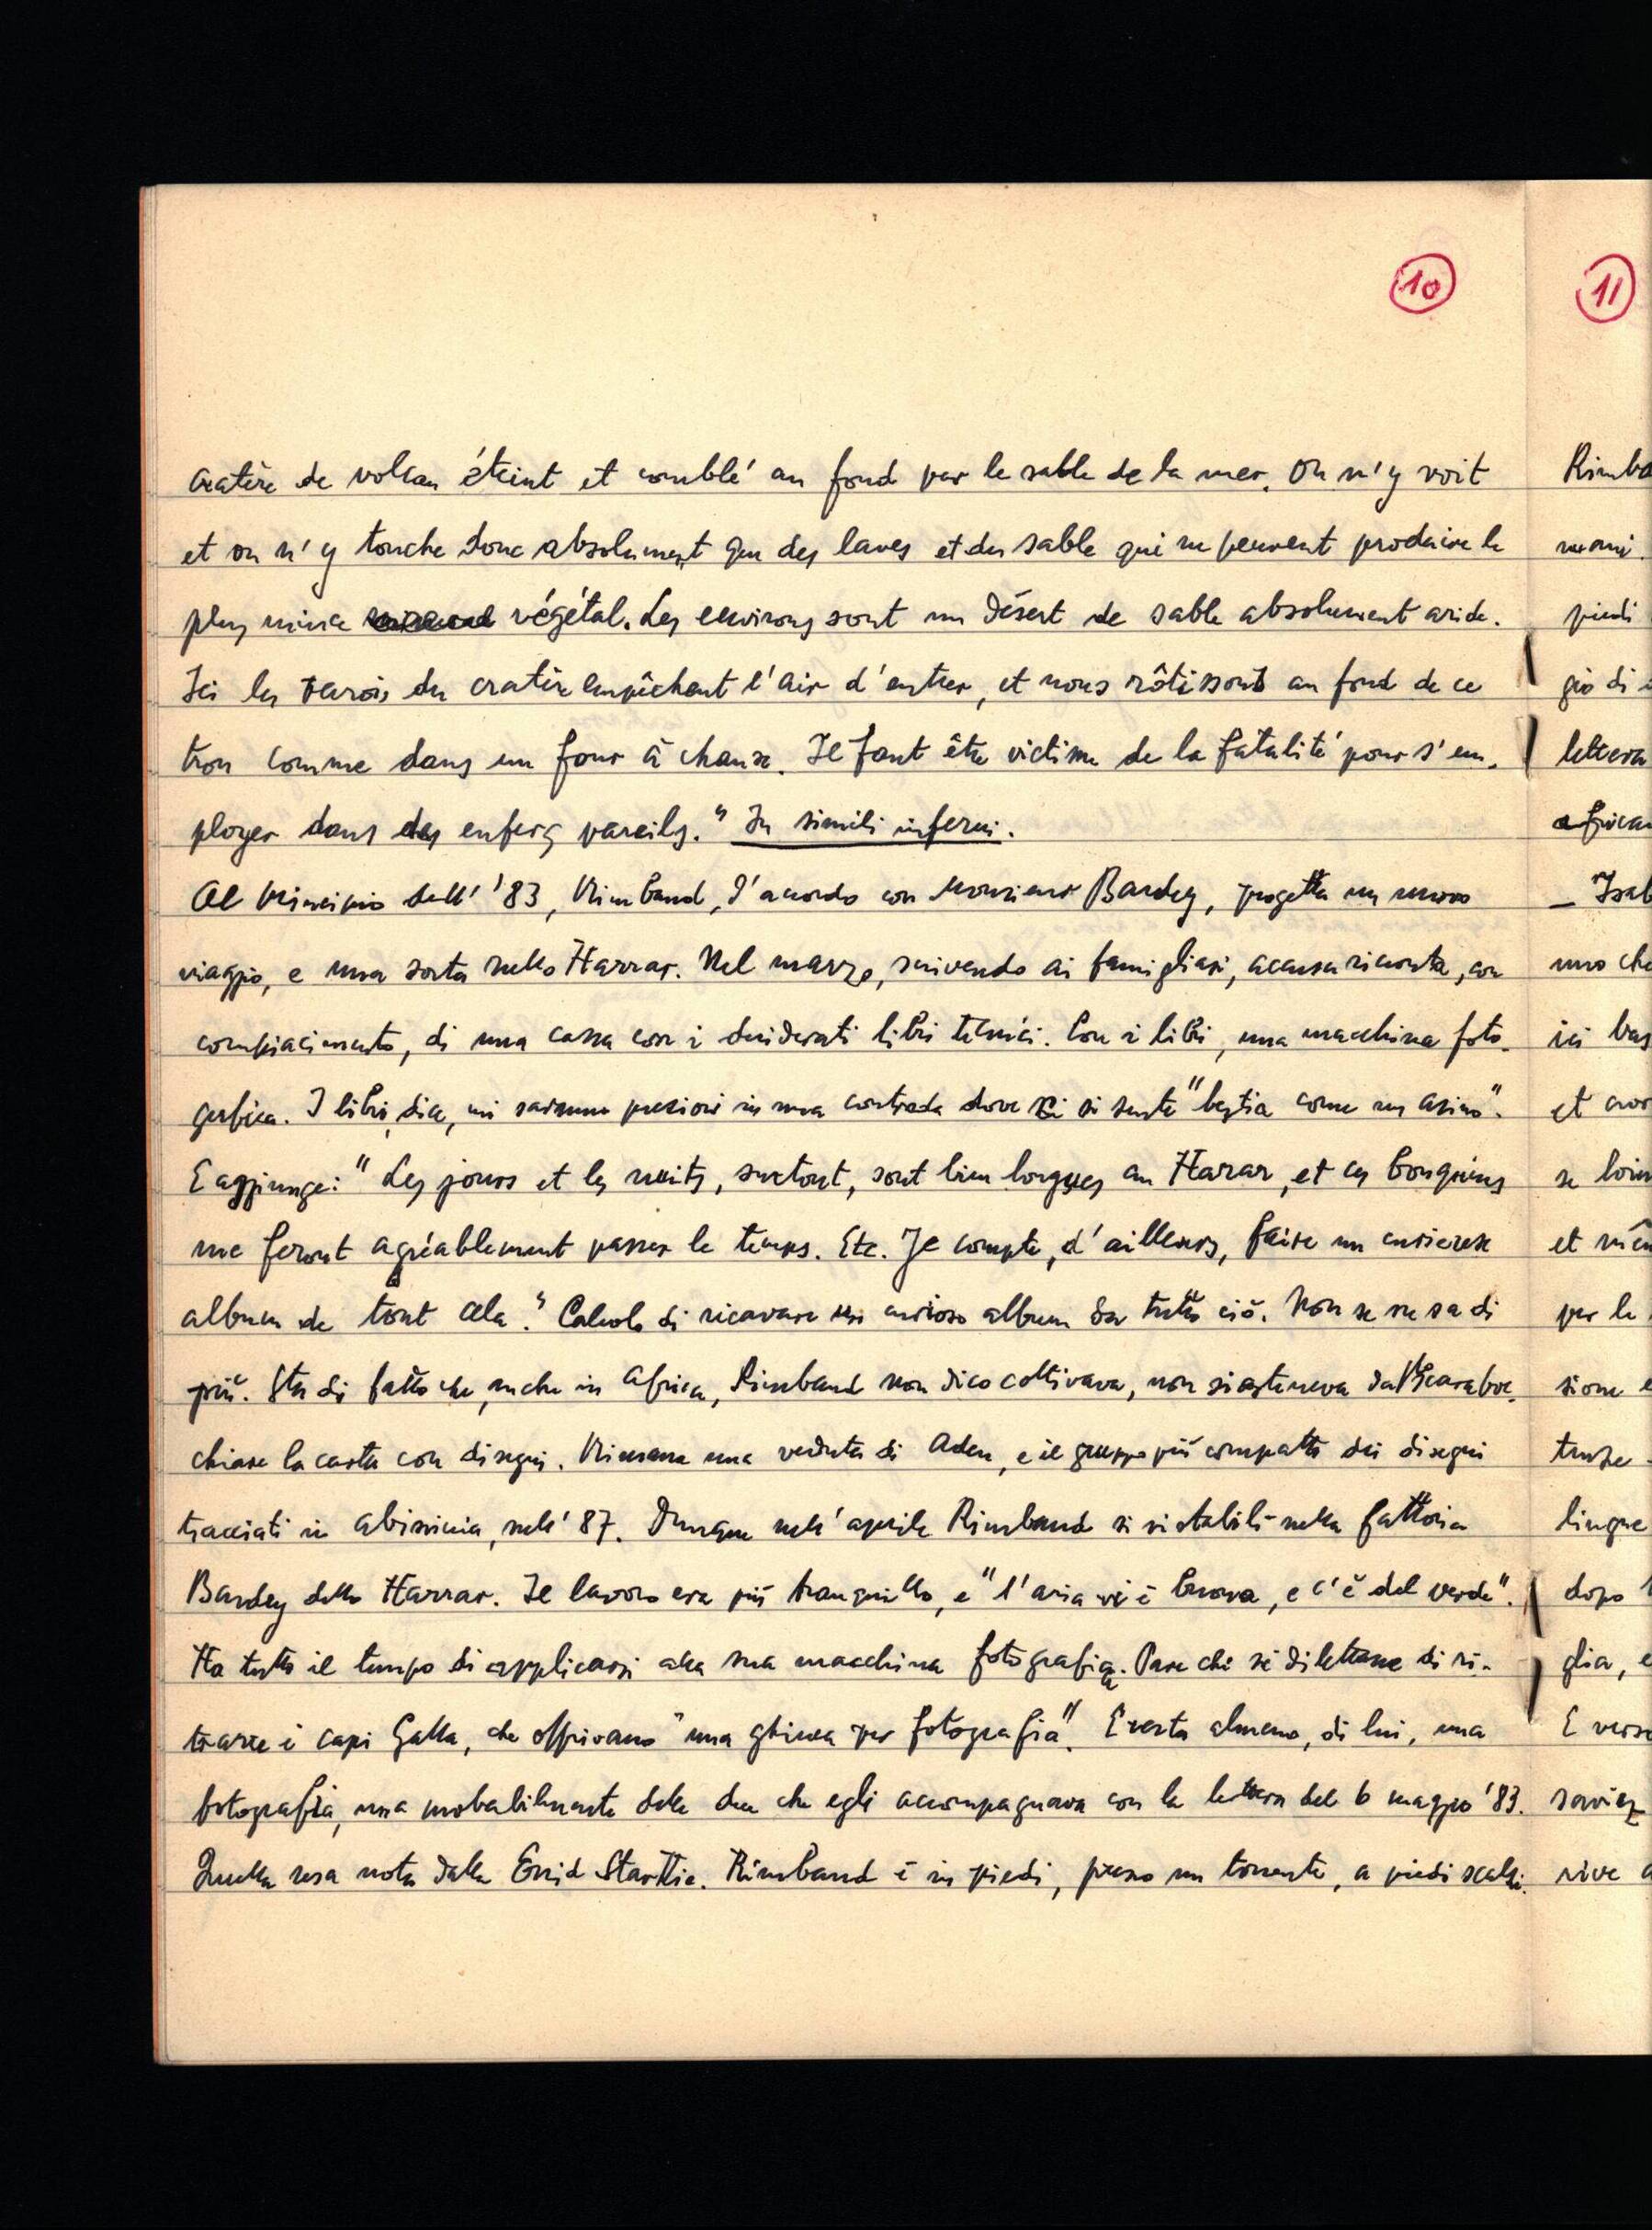 10
cratère de volcan éteint et comblé au fond par le sable de la mer. On n'y voit
et on n'y touche donc absolument que des laves et du sable qui ne peuvent produire le
plus mince végétal. Les environs sont un désert de sable absolument aride.
Ici les parois du cratère empêchent l'air d'entrer, et nous rôtissons au fond de ce
trou comme dans un four à chaux. Il faut être victime de la fatalité pour s'em-
ployer dans des enfers pareils." In simili inferni.
Al principio dell' '83, Rimbaud, d'accordo con Monsieur Bardey, progetta un nuovo
viaggio, e una sosta nello Harrar. Nel marzo, scrivendo ai famigliari, accusa ricevuta, con
compiacimento, di una cassa con i desiderati libri tecnici. Con i libri, una macchina foto-
grafica. I libri, dice, mi saranno preziosi in una contrada dove ci si sente "bestia come un asino".
E aggiunge: "Les jours et les nuits, surtout, sont bien longues au Harar, et ces bouquins
me feront agréablement passer le temps. Etc. Je compte, d'ailleurs, faire un curieux
album de tout cela." Calcolo di ricavare un curioso album da tutto ciò. Non se ne sa di
più. Sta di fatto che, anche in Africa, Rimbaud non dico coltivava, non si asteneva dallo scaraboc-
chiare la carta con disegni. Rimane una veduta di Aden, e il gruppo più compatto dei disegni
tracciati in Abissinia, nell' '87. Dunque nell'aprile Rimbaud si ristabilì nella fattoria
Bardey dello Harrar. Il lavoro era più tranquillo, e "l'aria vi è buona, e c'è del verde".
Ha tutto il tempo di applicarsi alla sua macchina fotografica. Pare che si dilettasse di ri-
trarre i capi Galla, che offrivano "una ghinea per fotografia". E resta almeno, di lui, una
fotografia, una probabilmente delle due che egli accompagnava con la lettera del 6 maggio '83.
Quella resa nota dalla Enid Starkie. Rimbaud è in piedi, presso un torrente, a piedi scalzi.
11